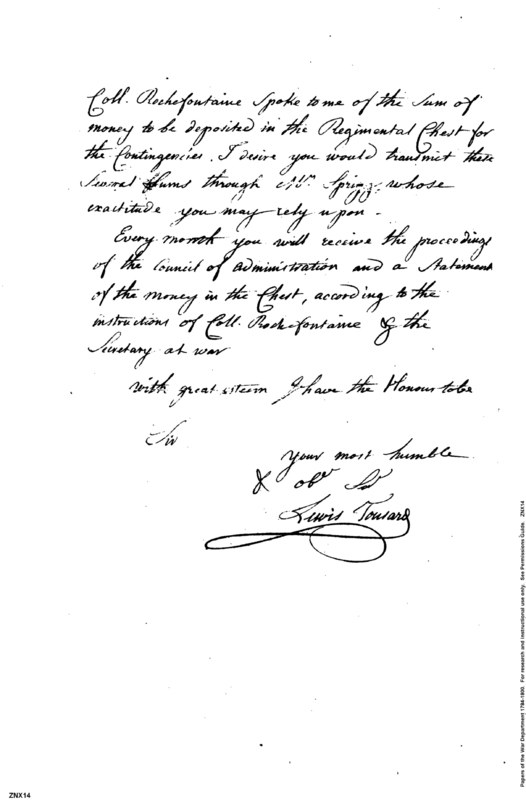 Coll. Rochefontaine Spoke to me of the Sum of
money to be deposited in the Regimental Chest for
the Contingencies. I desire you would transmit these
Several Sums through Mr. Spring, whose
exactitude you may rely upon.
Every month you will receive the proceedings
of the Council of administration and a Statement
of the money in the Chest, according to the
instructions of Coll. Rochefontaine & the
Secretary at war
with great esteem I have the Honour to be
Sir
your most humble
& obt St
Lewis Tousard
Papers of the War Department 1784-1800. For research and instructional use only. See Permissions Guide. ZNX14
ZNX14